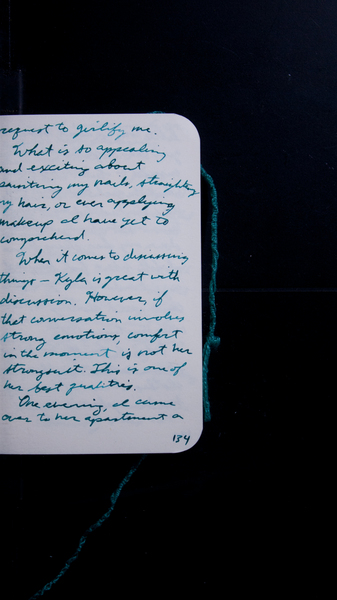 request to girlify me.
What is so appealing
and exciting about
painting my nails, straighting
my hair, or ever applying
makeup I have yet to
comprehend.
When it comes to discussing
things – Kyla is great with
discussion. However, if
that conversation involves
strong emotions, comfort
in the moment is not her
strongsuit. This is one of
her best qualities.
One evening, I came
over to her apartment a
134